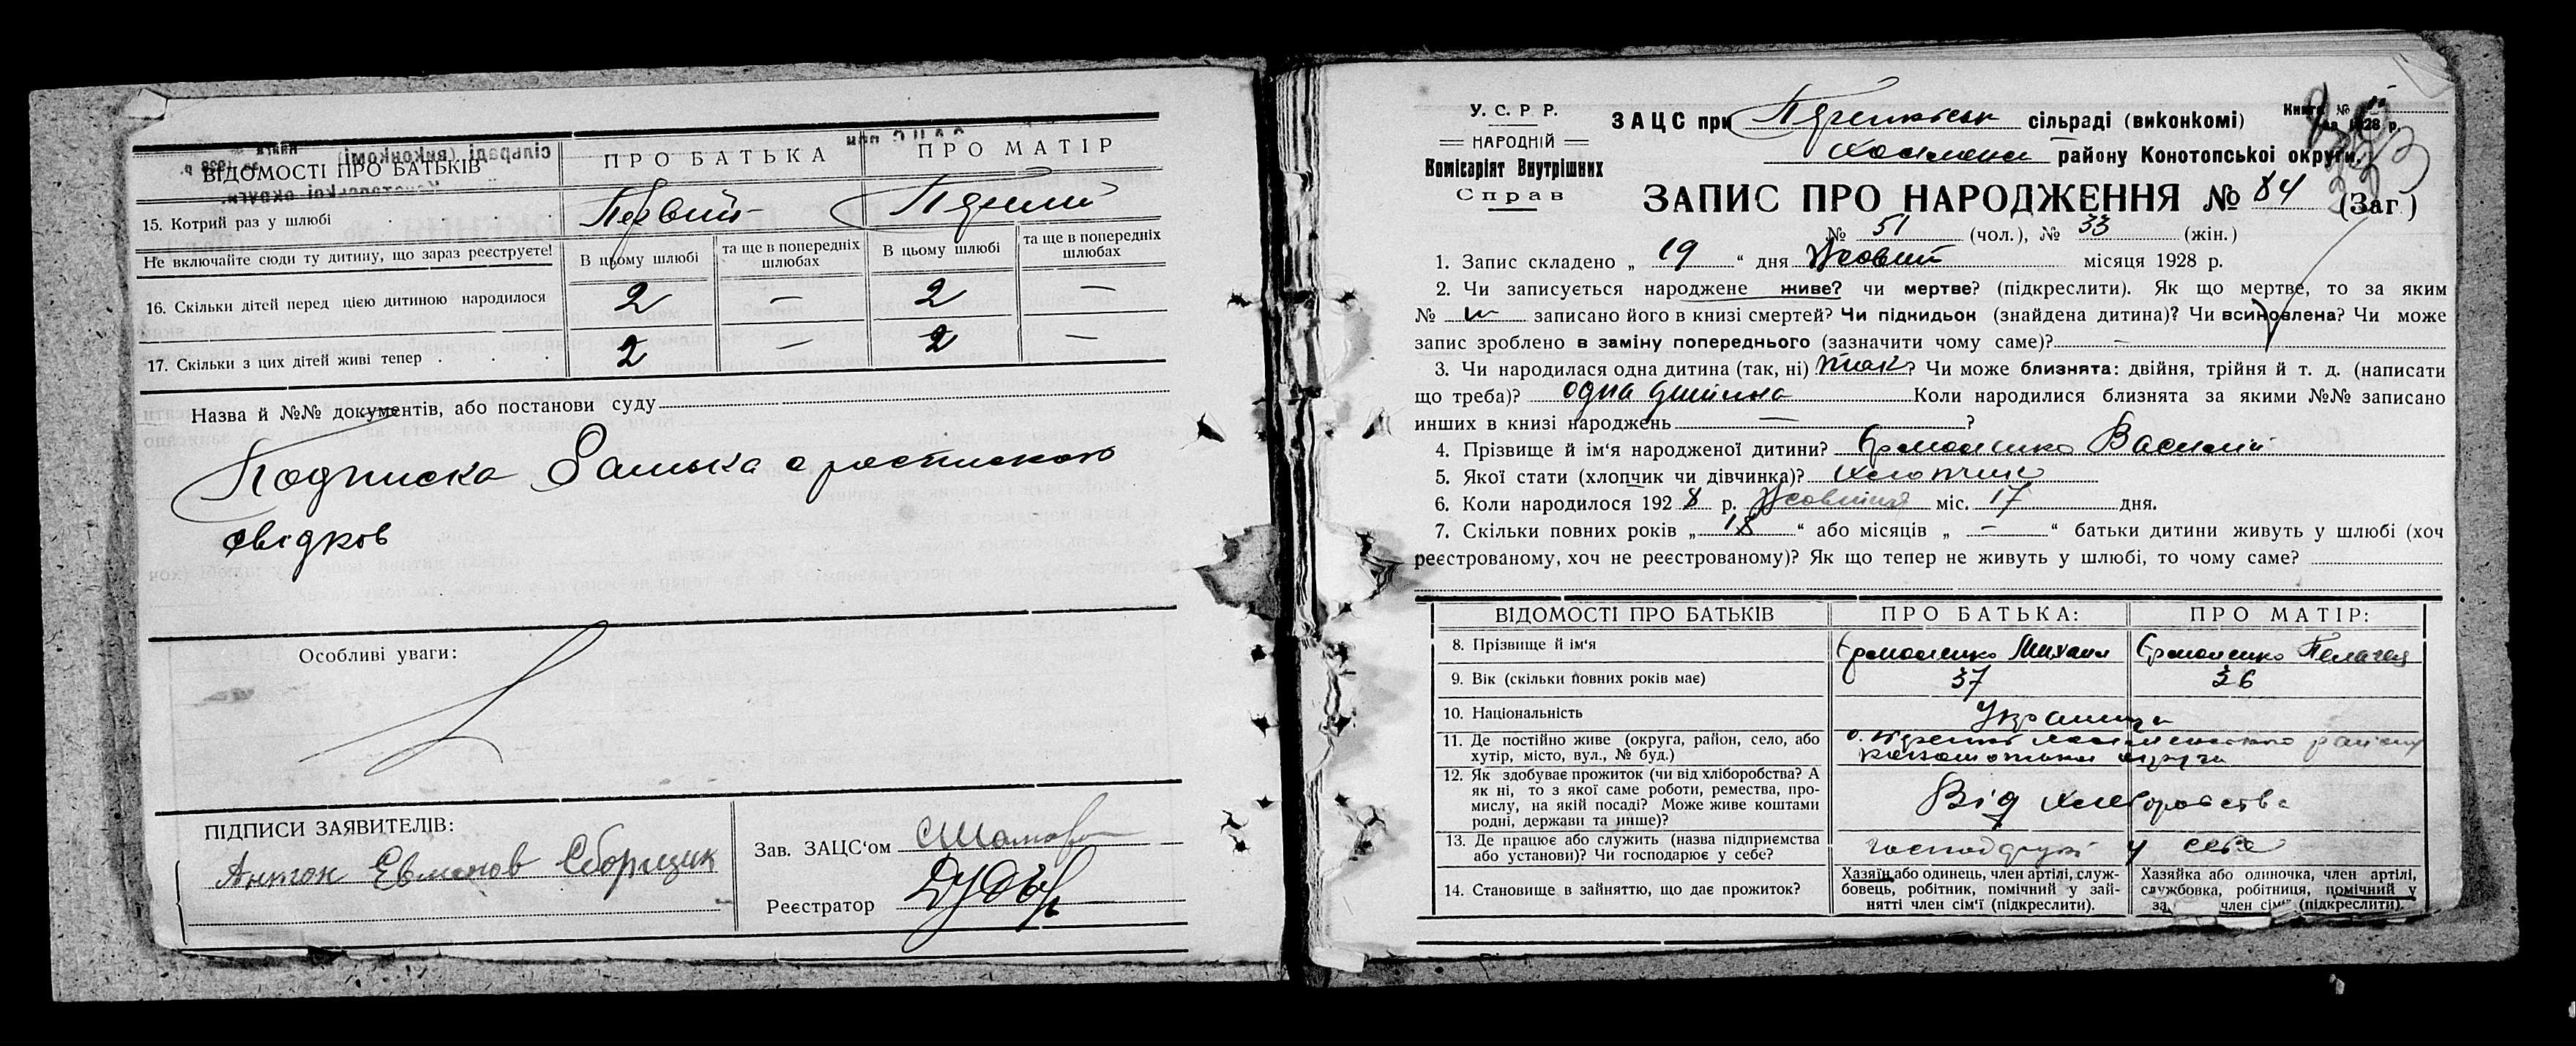 ВІДОМОСТІ ПРО БАТЬКІВ
ПРО БАТЬКА
ПРО МАТІР
15. Котрий раз у шлюбі
Первий
Не включайте сюди ту дитину, що зараз реєструєте!
В цьому шлюбі
та ще в попередніх шлюбах
В цьому шлюбі
та ще в попередніх шлюбах
16. Скільки дітей перед цією дитиною народилося
2 — 2 —
17. Скільки з цих дітей живі тепер
2 — 2 —
Назва й №№ документів, або постанови суду
Подписка
свідков
Особливі уваги:
ПІДПИСИ ЗАЯВИТЕЛІВ:
Антон Евменов Сборщик
Зав. ЗАЦС‘ом
Реєстратор
У. С. Р. Р.
НАРОДНІЙ
Комісаріят Внутрішних
Справ
ЗАЦС при сільраді (виконкомі)
Книга №
1928 р.
району Конотопської округи.
ЗАПИС ПРО НАРОДЖЕННЯ № 84 (Заг.)
№ 51 (чол.), № 33 (жін.)
1. Запис складено „ 19 “ дня місяця 1928 р.
2. Чи записується народжене живе? чи мертве? (підкреслити). Як що мертве, то за яким
№ записано його в книзі смертей? Чи підкидьок (знайдена дитина)? Чи всиновлена? Чи може
запис зроблено в заміну попереднього (зазначити чому саме)? —
3. Чи народилася одна дитина (так, ні) так? Чи може близнята: двійня, трійня й т. д. (написати
що треба)? одна дитина Коли народилися близнята за якими №№ записано
инших в книзі народжень — ?
4. Прізвище й ім‘я народженої дитини? Ермоленко Василій
5. Якої стати (хлопчик чи дівчинка)? Хлопчик
6. Коли народилося 1928 р. Жовтня міс. 17 дня.
7. Скільки повних років „ 18 “ або місяців „ — “ батьки дитини живуть у шлюбі (хоч
реєстрованому, хоч не реєстрованому)? Як що тепер не живуть у шлюбі, то чому саме?
ВІДОМОСТІ ПРО БАТЬКІВ
ПРО БАТЬКА:
ПРО МАТІР:
8. Прізвище й ім‘я
Ермоленко Михаил
Ермоленко Пелагея
9. Вік (скільки повних років має)
37
36
10. Національність
11. Де постійно живе (округа, район, село, або
хутір, місто, вул., № буд.)
12. Як здобуває прожиток (чи від хліборобства? А
як ні, то з якої саме роботи, ремества, про-
мислу, на якій посаді? Може живе коштами
родні, держави та инше)?
Від хлеборобства
13. Де працює або служить (назва підприємства
або установи)? Чи господарює у себе?
у себе
14. Становище в зайняттю, що дає прожиток?
Хазяїн або одинець, член артілі, служ-
бовець, робітник, помічний у зай-
нятті член сім‘ї (підкреслити).
Хазяйка або одиночка, член артілі,
службовка, робітниця, помічний у
за член сім‘ї (підкреслити).